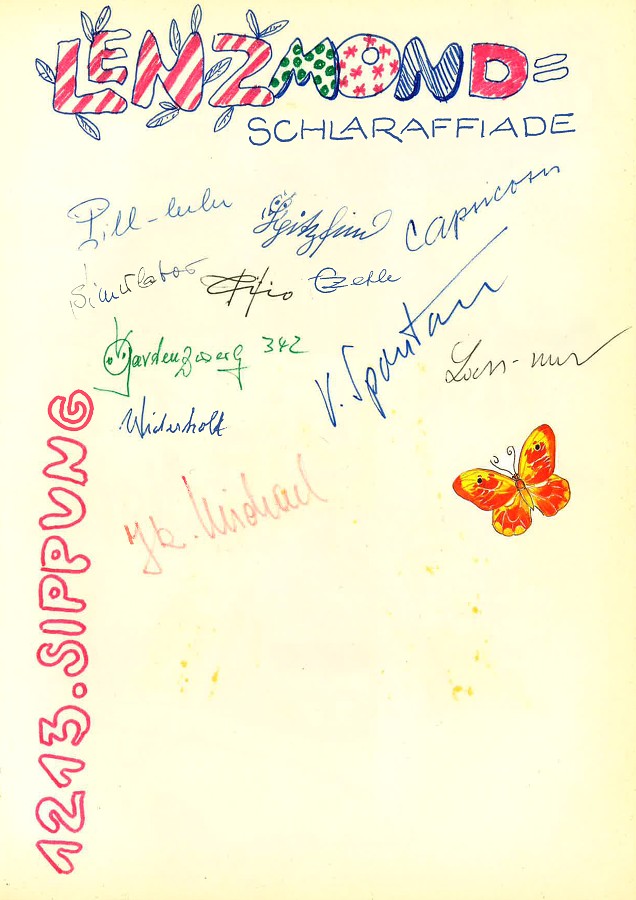 LENZMOND=
SCHLARAFFIADE
Pill-lulu Spitzfund Capricorn
Simulator
Gardenzwerg 342
V. Spontan
Widerholt
Jk. Michael
1213. SIPPUNG